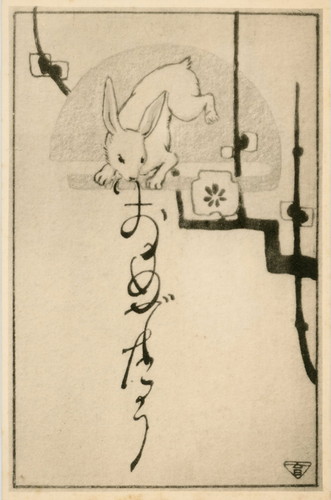 おめでたう